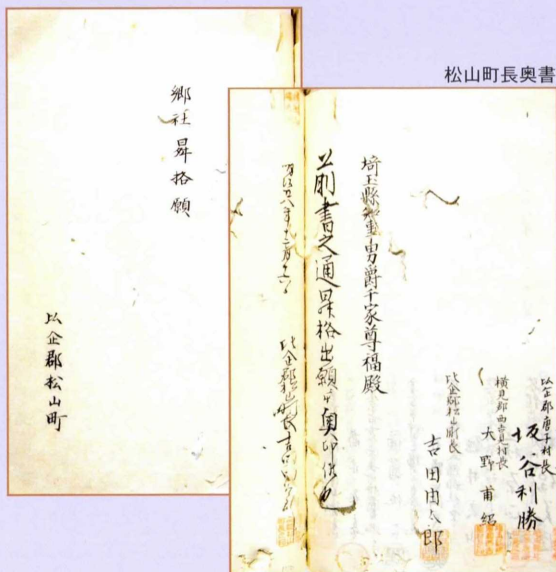 松山町長奥書
郷社昇格願
比企郡松山町
比企郡唐子村長
坂谷利勝
横見郡西吉見村長
大野甫紹
比企郡松山町長
吉田由太郎
埼玉縣知事男爵千家尊福殿
前書之通昇格出願ニ付奥印候也
比企郡松山町長吉田